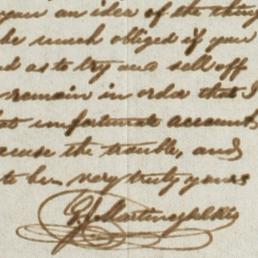 your an idea of the thing
be much obliged if your
as to try and sell off
remain in order that I
unfortunate account
excuse the trouble, and
to be very truly yours